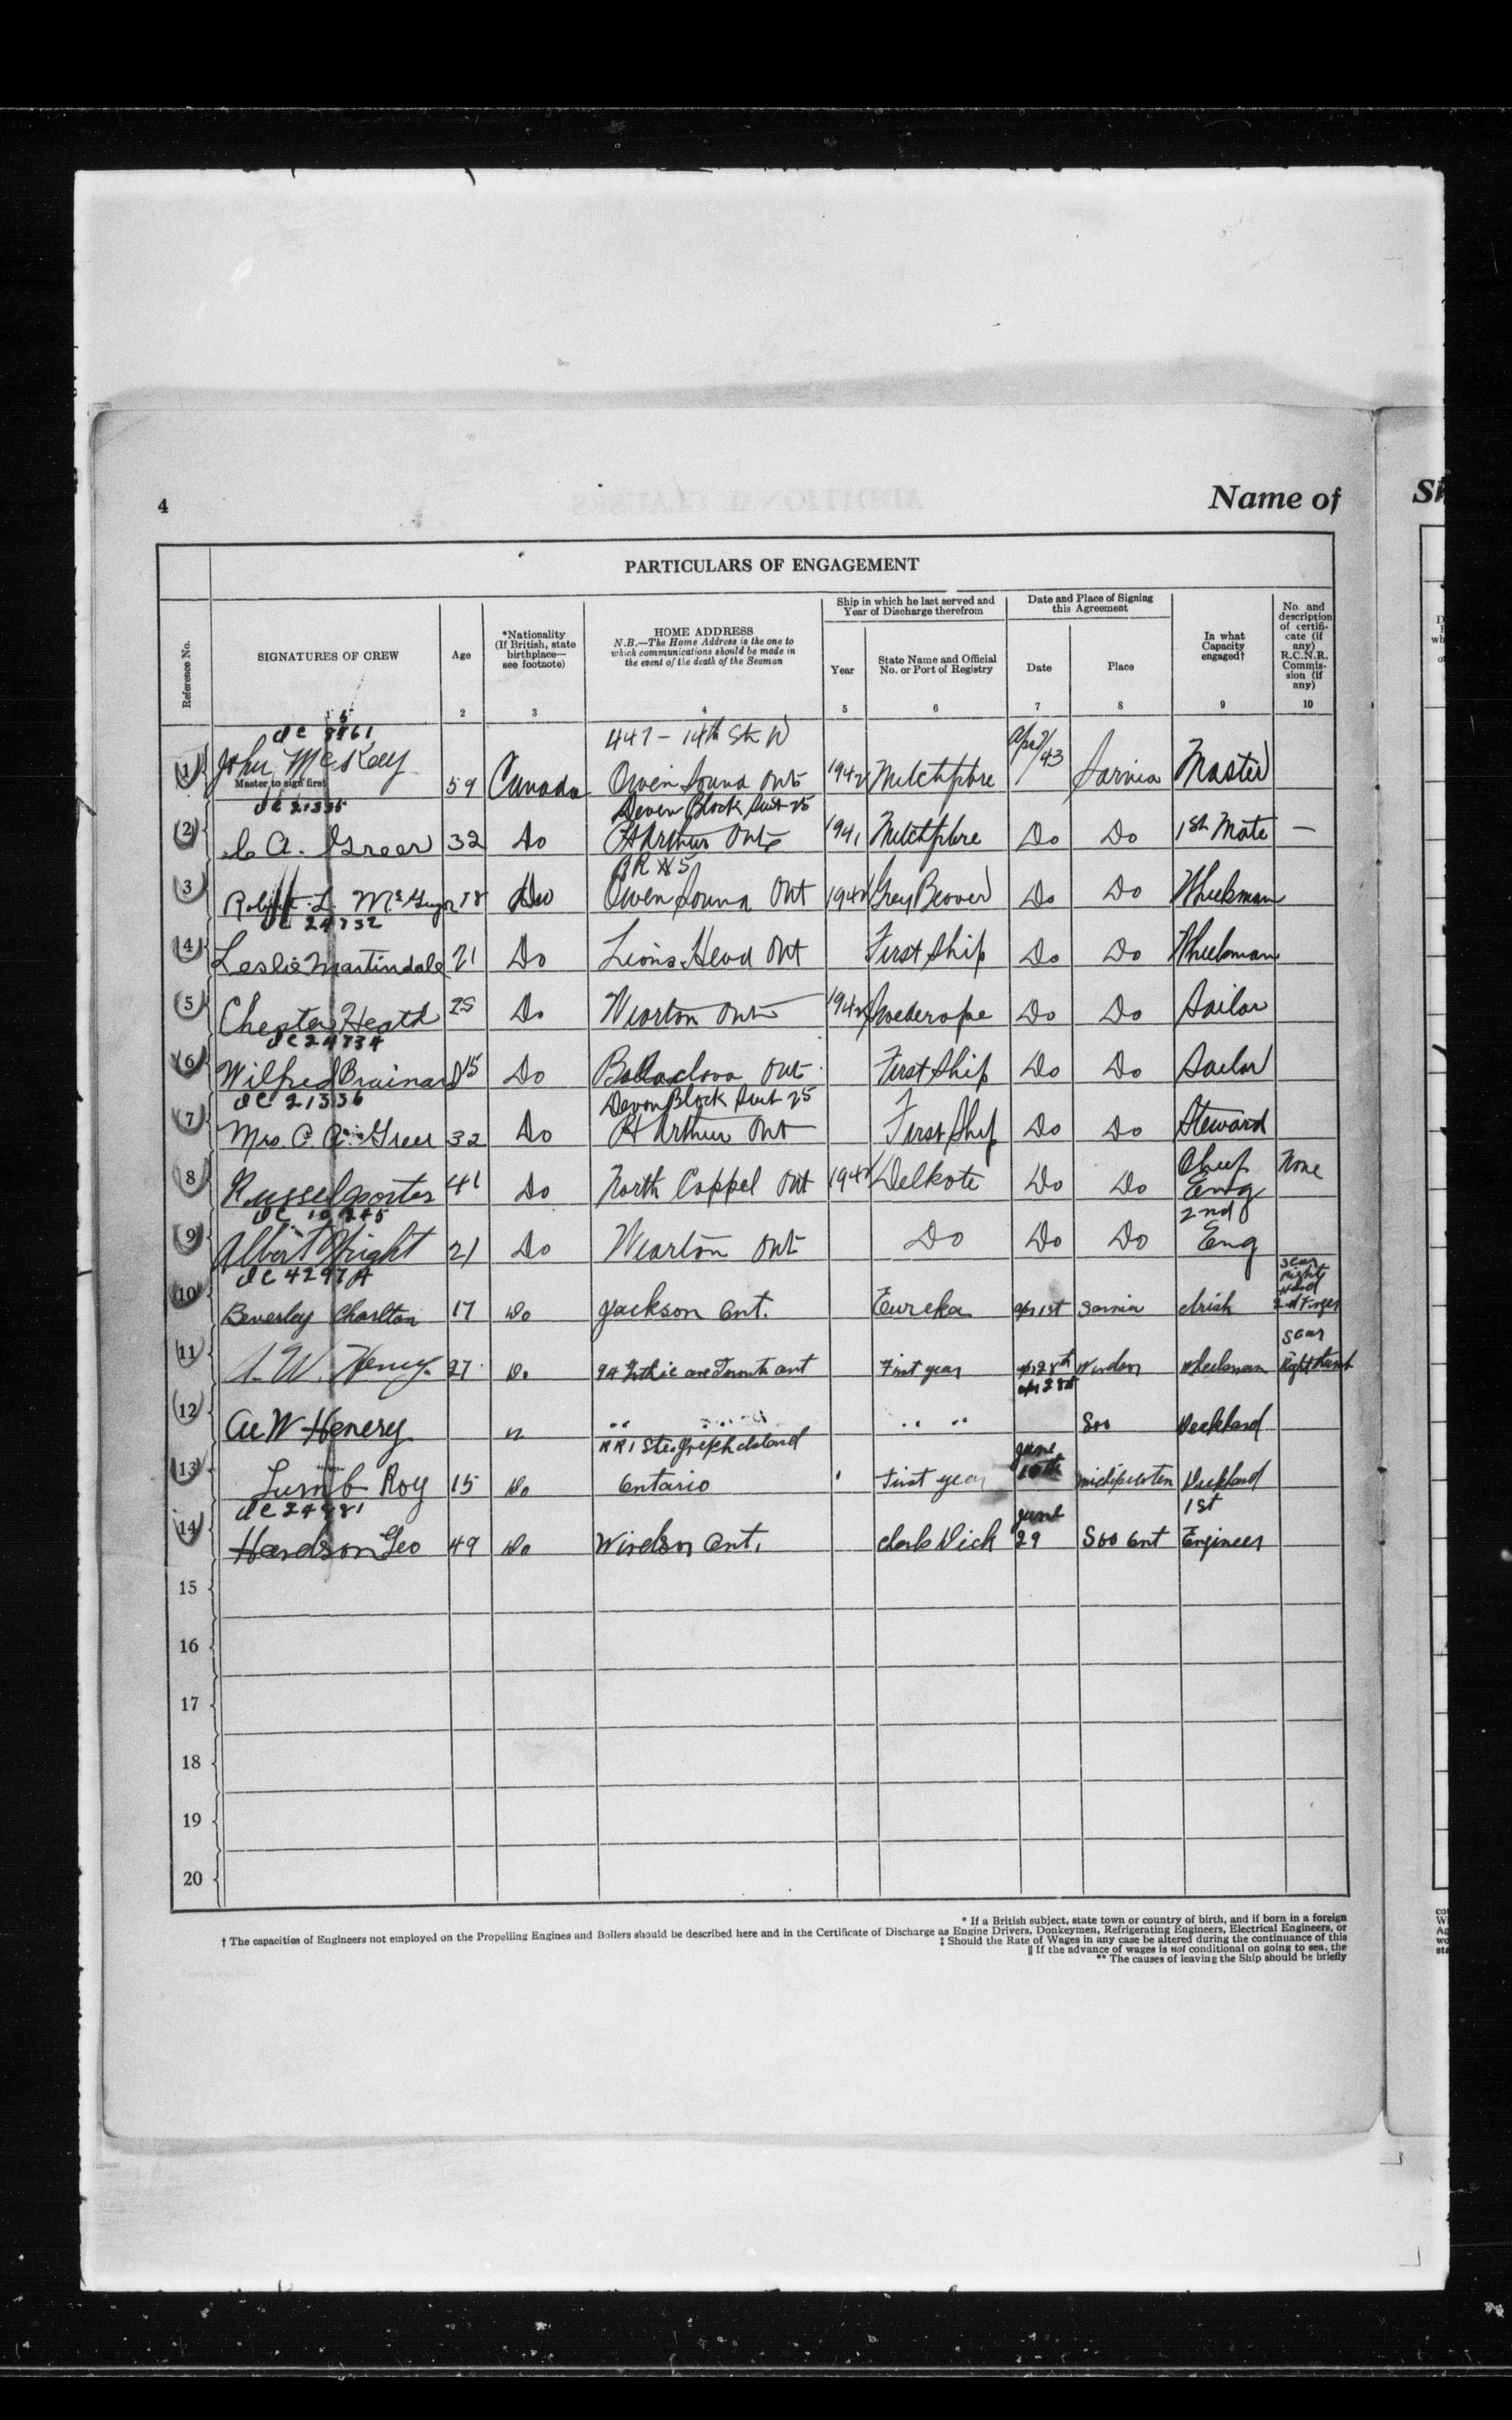 4
Name of
PARTICULARS OF ENGAGEMENT
Reference No.
SIGNATURES OF CREW
Age
*Nationality
(If British, state
birthplace—
see footnote)
HOME ADDRESS
N.B.—The Home Address is the one to
which communications should be made in
the event of the death of the Seaman
Ship in which he last served and
Year of Discharge therefrom
Year
State Name and Official
No. or Port of Registry
Date and Place of Signing
this Agreement
Date
Place
In what
Capacity
engaged†
No. and
description
of certifi-
cate (if
any)
R.C.N.R.
Commis-
sion (if
any)
2 3 4 5 6 7 8 9 10
447 - 14th St W
1 John McKay 59 Canada Owen Sound Ont 1942 Sarnia Master
Master to sign first
DC 21335 Devon Block Suit 25
2 C A. Greer 32 Do Pt Arthur Ont 1941 Do Do 1st Mate —
RR #5
3 Robert L. 18 Do Owen Sound Ont 1942 Grey Beaver Do Do Wheelman
DC 24732
4 Leslie Martindale 21 Do Lions Head Ont First Ship Do Do Wheelman
5 Chester Heath 25 Do Wiarton Ont 1942 Do Do Sailor
DC 24734
6 Wilfred Brainard Do Ont First Ship Do Do Sailor
DC 21336 Devon Block Suit 25
7 Mrs. C. A. Greer 32 Do Pt Arthur Ont First Ship Do Do Steward
8 Russel Porter 41 Do North Ont 1942 Delkote Do Do Chief Eng None
9 Albert Wright 21 Do Wiarton Ont Do Do Do 2nd Eng
DC 4297A
10 Beverley Charlton 17 Do Jackson Ont. Eureka Apr 1st Sarnia scar Right Hand 2nd Finger
11 W. Henry 27 Do 94 Gothic ave Toronto Ont First year Apr 28th Windsor Wheelman scar Right Hand
12 W Henery " " " " Soo Deckhand
RR 1 Ste. Joseph Island
13 Lumb Roy 15 Do Ontario First year June 10th Michipicoten Deckhand
14 Hardson Geo 49 Do Windsor Ont. June 29 Soo Ont 1st Engineer
15
16
17
18
19
20
* If a British subject, state town or country of birth, and if born in a foreign
† The capacities of Engineers not employed on the Propelling Engines and Boilers should be described here and in the Certificate of Discharge as Engine Drivers, Donkeymen, Refrigerating Engineers, Electrical Engineers, or
‡ Should the Rate of Wages in any case be altered during the continuance of this
‖ If the advance of wages is not conditional on going to sea, the
** The causes of leaving the Ship should be briefly